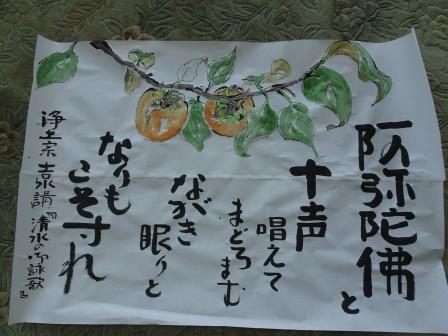 阿弥陀佛と
十声
唱えて
まどろまむ
ながき
眠りと
なりも
こそすれ
浄土宗吉水講『清水の御詠歌』